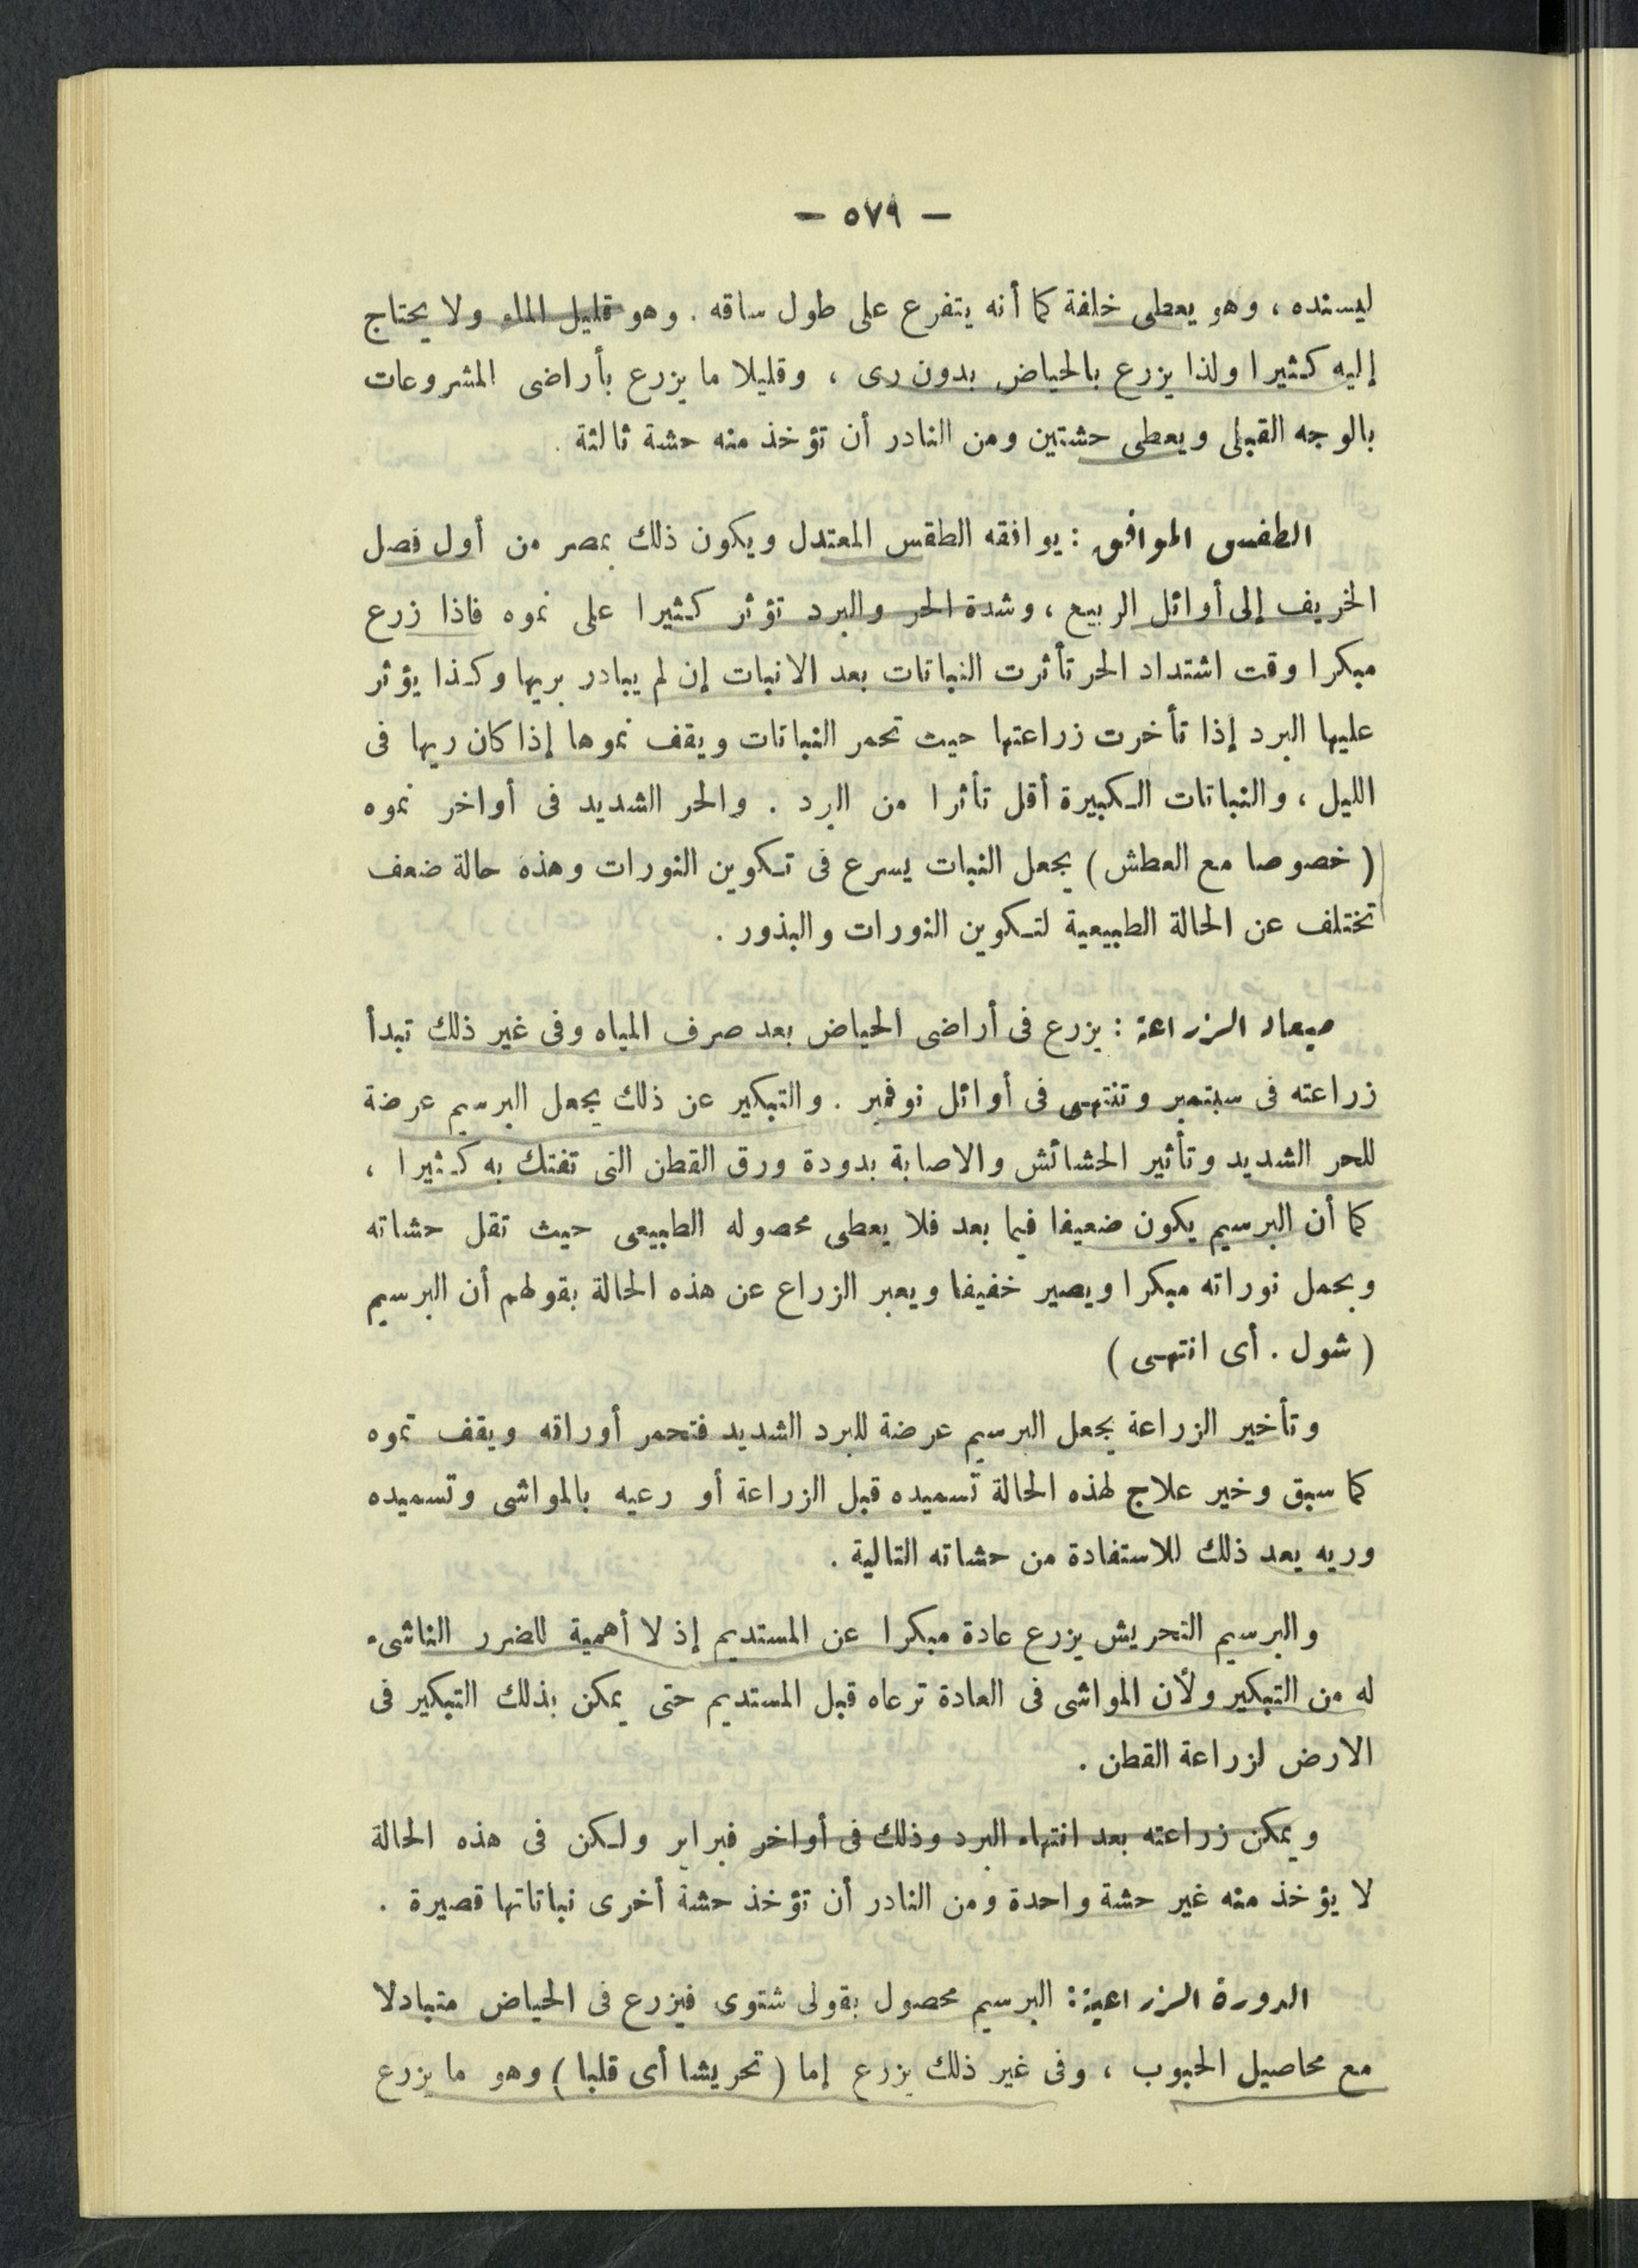 — ٥٧٩ —
ليسنده ، وهو يعطى خلفة كما أنه يتفرع على طول ساقه . وهو قليل الماء ولا يحتاج
إليه كثيرا ولذا يزرع بالحياض بدون رى ، وقليلا ما يزرع بأراضى المشروعات
بالوجه القبلى ويعطى حشتين ومن النادر أن تؤخذ منه حشة ثالثة .
الطقس الموافق : يوافقه الطقس المعتدل ويكون ذلك بمصر من أول فصل
الخريف إلى أوائل الربيع ، وشدة الحر والبرد تؤثر كثيرا على نموه فاذا زرع
مبكرا وقت اشتداد الحر تأثرت النباتات بعد الانبات إن لم يبادر بريها وكذا يؤثر
عليها البرد إذا تأخرت زراعتها حيث تحمر النباتات ويقف نموها إذا كان ريها فى
الليل ، والنباتات الكبيرة أقل تأثرا من البرد . والحر الشديد فى أواخر نموه
( خصوصا مع العطش ) يجعل النبات يسرع فى تكوين النورات وهذه حالة ضعف
تختلف عن الحالة الطبيعية لتكوين النورات والبذور .
ميعاد الزراعة : يزرع فى أراضى الحياض بعد صرف المياه وفى غير ذلك تبدأ
زراعته فى سبتمبر وتنتهى فى أوائل نوفمبر . والتبكير عن ذلك يجعل البرسيم عرضة
للحر الشديد وتأثير الحشائش والاصابة بدودة ورق القطن التى تفتك به كثيرا ،
كما أن البرسيم يكون ضعيفا فيما بعد فلا يعطى محصوله الطبيعى حيث تقل حشاته
ويحمل نوراته مبكرا ويصير خفيفا ويعبر الزراع عن هذه الحالة بقولهم أن البرسيم
( شول . أى انتهى )
وتأخير الزراعة يجعل البرسيم عرضة للبرد الشديد فتحمر أوراقه ويقف نموه
كما سبق وخير علاج لهذه الحالة تسميده قبل الزراعة أو رعيه بالمواشى وتسميده
وريه بعد ذلك للاستفادة من حشاته التالية .
والبرسيم التحريش يزرع عادة مبكرا عن المستديم إذ لا أهمية للضرر الناشىء
له من التبكير ولأن المواشى فى العادة ترعاه قبل المستديم حتى يمكن بذلك التبكير فى
الارض لزراعة القطن .
ويمكن زراعته بعد انتهاء البرد وذلك فى أواخر فبراير ولكن فى هذه الحالة
لا يؤخذ منه غير حشة واحدة ومن النادر أن تؤخذ حشة أخرى نباتاتها قصيرة .
الدورة الزراعية : البرسيم محصول بقولى شتوى فيزرع فى الحياض متبادلا
مع محاصيل الحبوب ، وفى غير ذلك يزرع إما ( تحريشا أى قلبا ) وهو ما يزرع